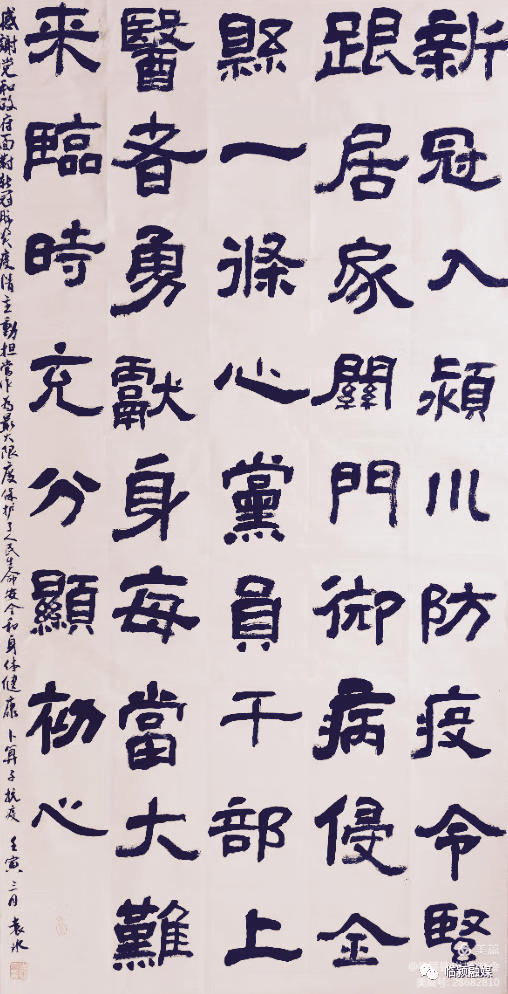 新冠入潁川防疫令緊
跟居家關門御病侵金
縣一條心黨員干部上
醫者勇獻身每當大難
来臨時充分顯初心
感謝党和政府面對新冠肺炎疫情主動担當作为最大限度保护了人民生命安全和身体健康 卜算子抗疫 壬寅三月 袁冰
美篇
美篇号:28682810
临颍融媒